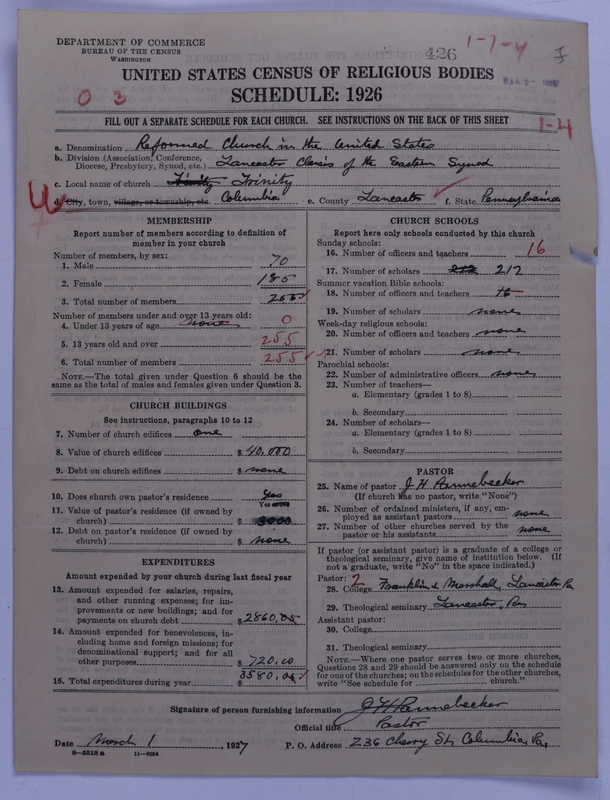 426
1-7-4
DEPARTMENT OF COMMERCE
BUREAU OF THE CENSUS
WASHINGTON
UNITED STATES CENSUS OF RELIGIOUS BODIES
SCHEDULE: 1926
0 3
FILL OUT A SEPARATE SCHEDULE FOR EACH CHURCH. SEE INSTRUCTIONS ON THE BACK OF THIS SHEET
1-4
a. Denomination Reformed Church in the United States
b. Division (Association, Conference, Diocese, Presbytery, Synod, etc.) Lancaster Classis of the Eastern Synod
c. Local name of church Trinity Trinity
d. City, town, village, or township, etc. Columbia e. County Lancaster f. State Pennsylvania
MEMBERSHIP
Report number of members according to definition of
member in your church
Number of members, by sex:
1. Male 70
2. Female 185
3. Total number of members 255
Number of members under and over 13 years old:
4. Under 13 years of age none 0
5. 13 years old and over 255
6. Total number of members 255
NOTE.—The total given under Question 6 should be
the same as the total of males and females given under Question 3.
CHURCH BUILDINGS
See instructions, paragraphs 10 to 12
7. Number of church edifices one
8. Value of church edifices $ 40,000
9. Debt on church edifices $ none
10. Does church own pastor's residence Yes
Yes or no
11. Value of pastor's residence (if owned by
church) $ 3000
12. Debt on pastor's residence (if owned by
church) $ none
EXPENDITURES
Amount expended by your church during last fiscal year
13. Amount expended for salaries, repairs,
and other running expenses; for im-
provements or new buildings; and for
payments on church debt $ 2860.05
14. Amount expended for benevolences, in-
cluding home and foreign missions; for
denominational support; and for all
other purposes $ 720.00
15. Total expenditures during year $ 3580.05
CHURCH SCHOOLS
Report here only schools conducted by this church
Sunday schools:
16. Number of officers and teachers 16
17. Number of scholars 212
Summer vacation Bible schools:
18. Number of officers and teachers 16
19. Number of scholars none
Week-day religious schools:
20. Number of officers and teachers none
21. Number of scholars none
Parochial schools:
22. Number of administrative officers none
23. Number of teachers—
a. Elementary (grades 1 to 8)
b. Secondary
24. Number of scholars—
a. Elementary (grades 1 to 8)
b. Secondary
PASTOR
25. Name of pastor J. H. Pannebecker
(If church has no pastor, write "None")
26. Number of ordained ministers, if any, em-
ployed as assistant pastors none
27. Number of other churches served by the
pastor or his assistants none
If pastor (or assistant pastor) is a graduate of a college or
theological seminary, give name of institution below. (If
not a graduate, write "No" in the space indicated.)
Pastor: 2
28. College Franklin & Marshall, Lancaster Pa
29. Theological seminary Lancaster, Pa
Assistant pastor:
30. College
31. Theological seminary
NOTE.—Where one pastor serves two or more churches,
Questions 28 and 29 should be answered only on the schedule
for one of the churches; on the schedules for the other churches,
write "See schedule for church."
Signature of person furnishing information J H Pannebecker
Official title Pastor
Date March 1, 1927 P. O. Address 236 Cherry St, Columbia, Pa.
8—5518 a 11—9564